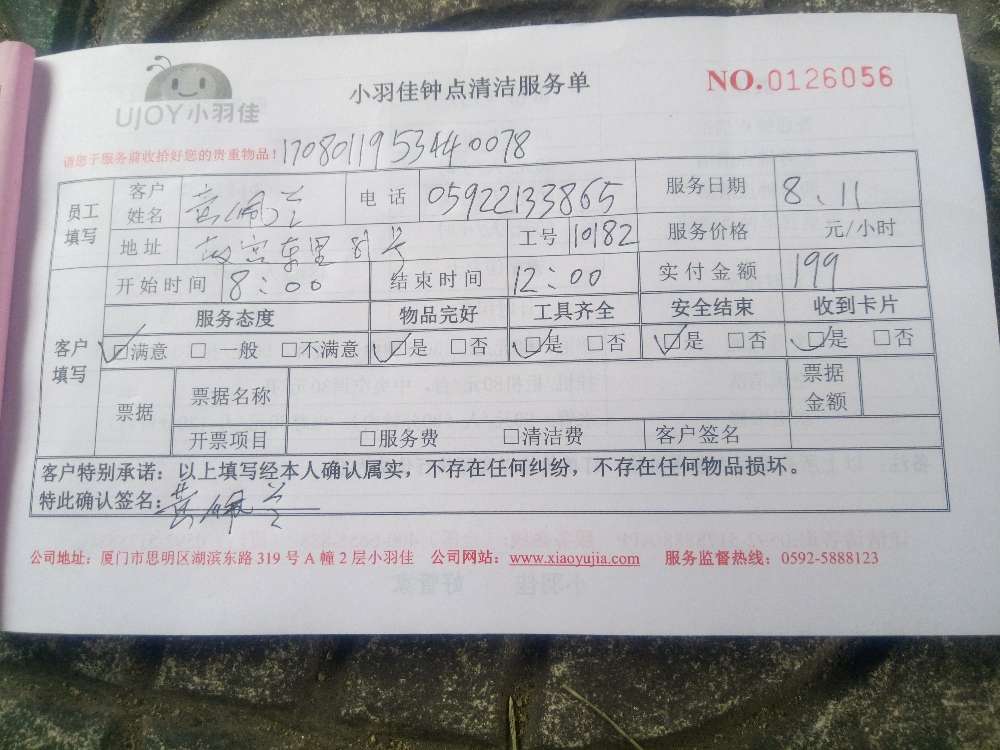 UJOY小羽佳
小羽佳钟点清洁服务单
NO.0126056
请您于服务前收拾好您的贵重物品！
1708011953440078
员工填写 客户姓名 黄佩兰 电话 05922133865 服务日期 8.11
地址 故宫东里 号 工号 110182 服务价格 元/小时
客户填写 开始时间 8:00 结束时间 12:00 实付金额 199
服务态度 物品完好 工具齐全 安全结束 收到卡片
☑满意 □ 一般 □不满意 ☑是 □否 ☑是 □否 ☑是 □否 ☑是 □否
票据 票据名称 票据金额
开票项目 □服务费 □清洁费 客户签名
客户特别承诺：以上填写经本人确认属实，不存在任何纠纷，不存在任何物品损坏。
特此确认签名：黄佩兰
公司地址：厦门市思明区湖滨东路 319 号 A 幢 2 层小羽佳 公司网站：www.xiaoyujia.com 服务监督热线：0592-5888123